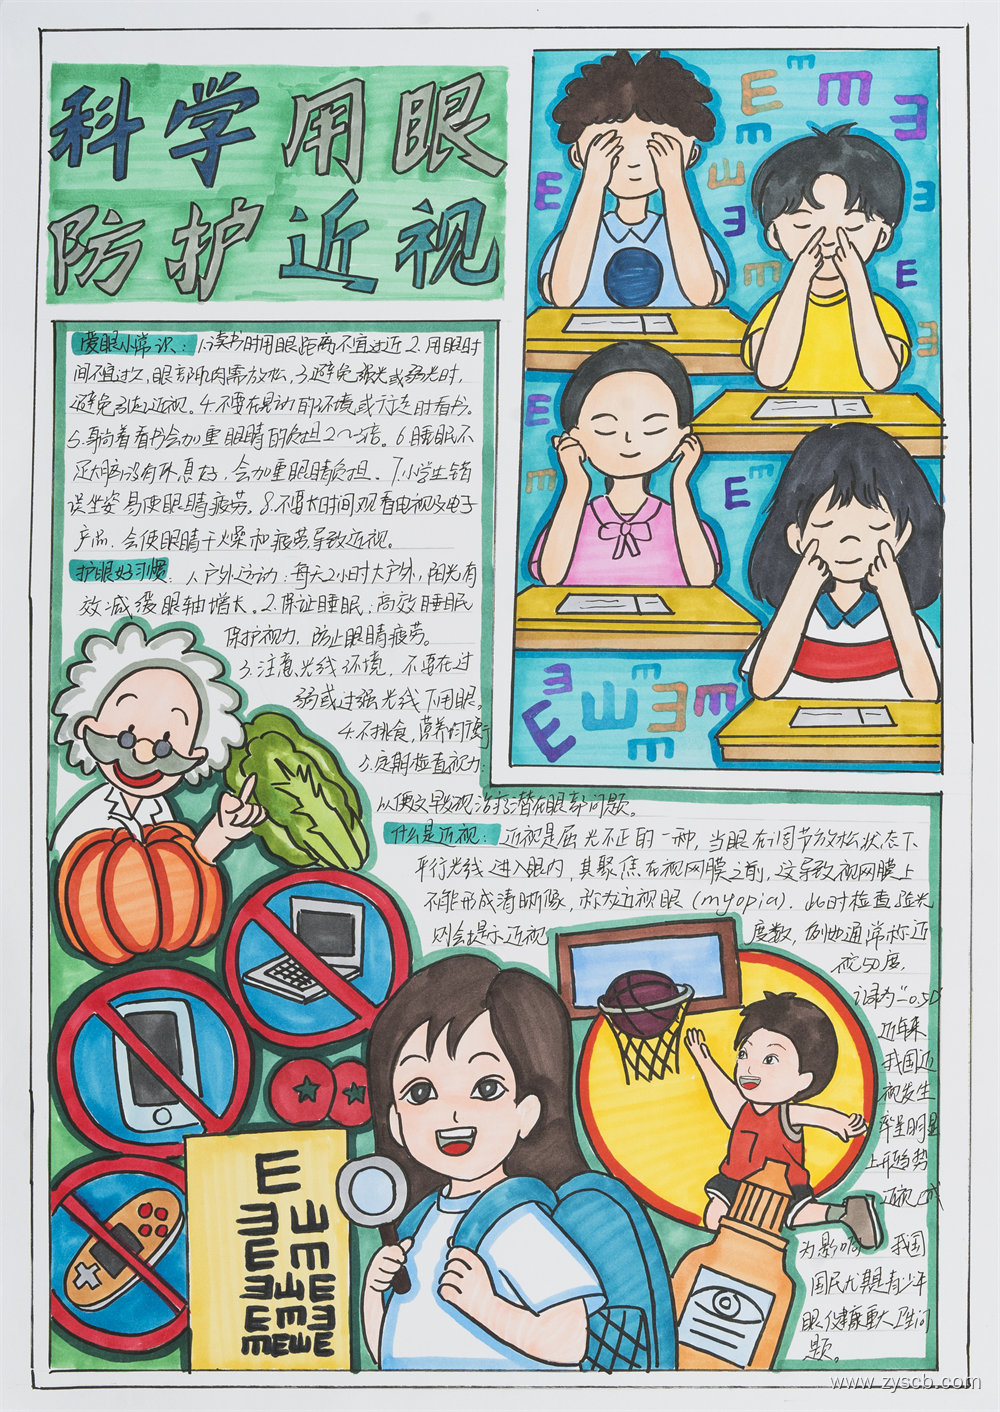 科学用眼
防护近视
爱眼小常识：1.读书时用眼距离不宜过近 2.用眼时
间不宜过久，眼部肌肉需放松，3.避免强光或弱光时，
避免引起近视。4.不要在晃动的环境或行走时看书。
5.躺着看书会加重眼睛的负担2～3倍。6.睡眠不
足大脑没有休息好，会加重眼睛负担。7.小学生错
误坐姿易使眼睛疲劳。8.不要长时间观看电视及电子
产品，会使眼睛干燥和疲劳导致近视。
护眼好习惯：1.户外活动：每天2小时大户外，阳光有
效减缓眼轴增长。2.保证睡眠：高效睡眠
保护视力，防止眼睛疲劳。
3.注意光线环境，不要在过
弱或过强光线下用眼。
4.不挑食，营养均衡
5.定期检查视力：
以便又早发现治疗潜在眼部问题。
什么是近视：近视是屈光不正的一种，当眼在调节放松状态下
平行光线进入眼内，其聚焦在视网膜之前，这导致视网膜上
不能形成清晰像，称为近视眼(myopia)。此时检查验光
则会提示近视
度数，例如通常称近
视50度，
记录为"-0.5D
近年来
我国近
视发生
率呈明显
上升趋势
近视已成
为影响 我国
国民尤其是青少年
眼健康重大卫生问
题。
www.zyscb.com